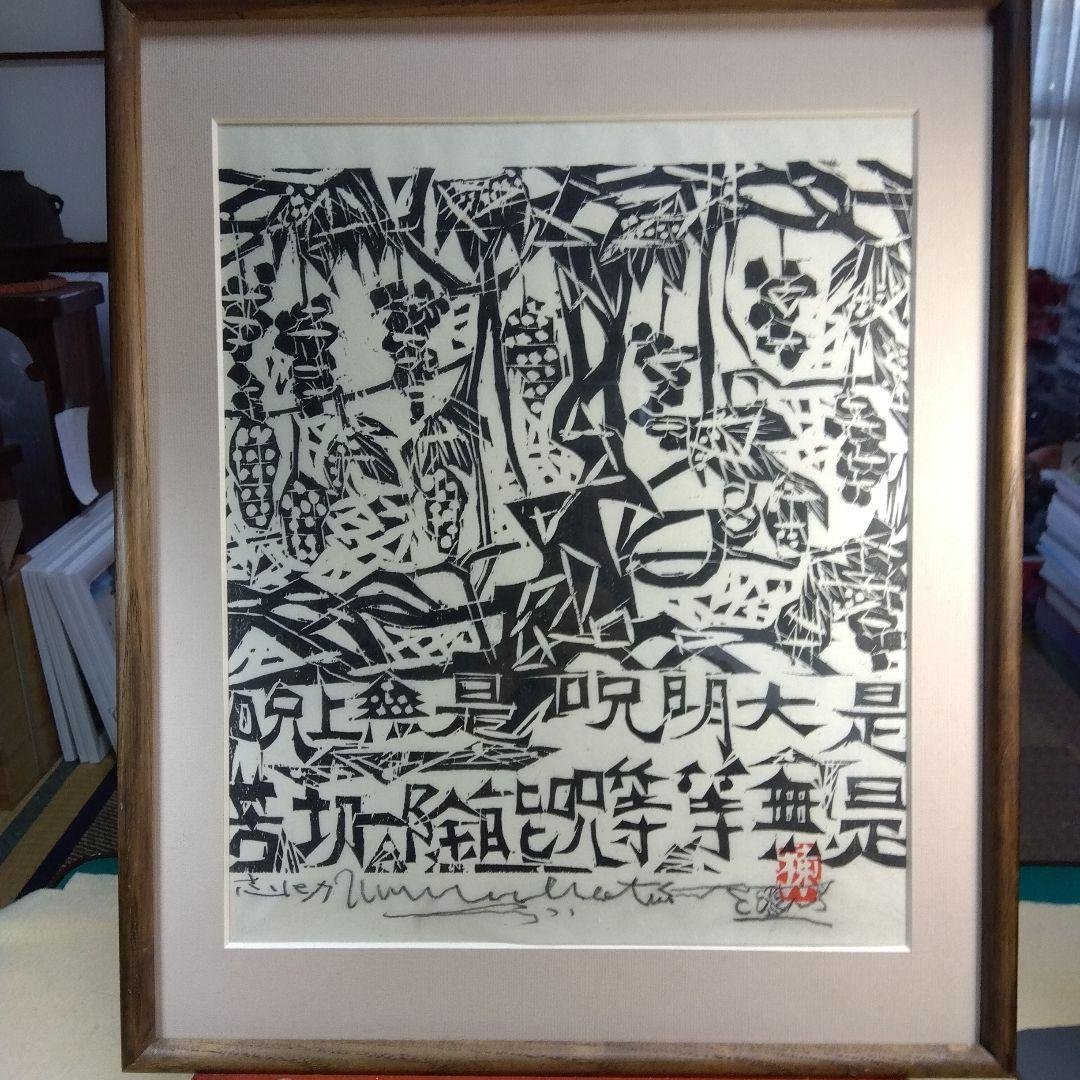 是大明呪是無上呪
是無等等呪能除切苦
志功 Munakata
棟